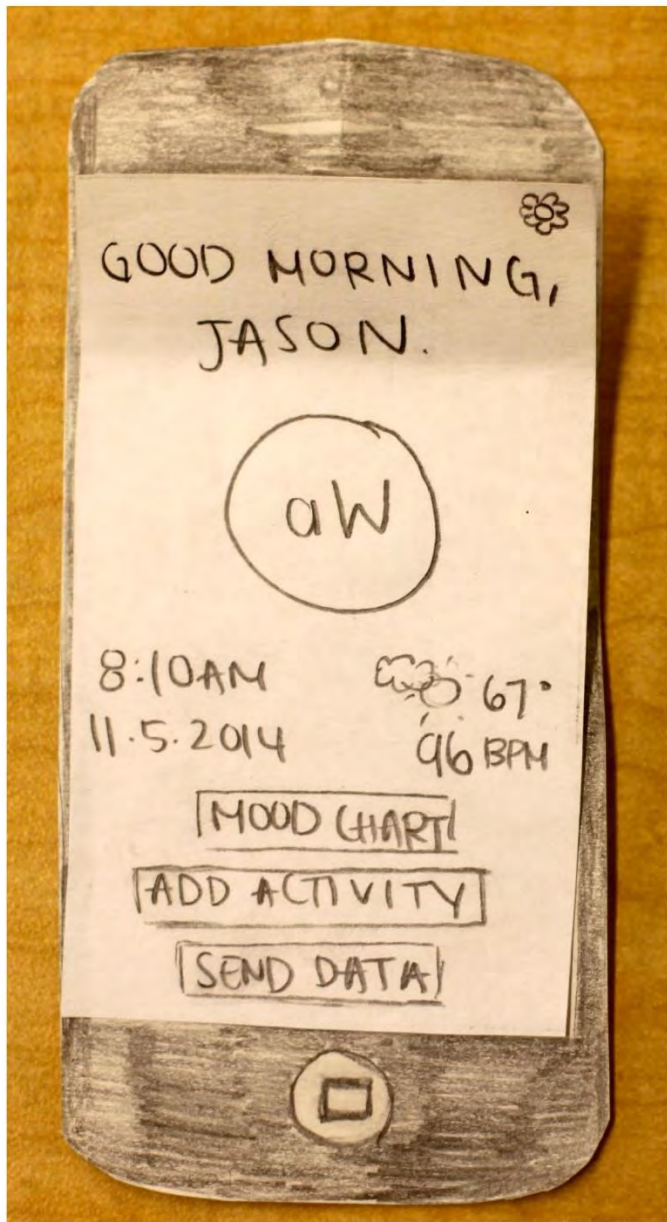 GOOD MORNING,
JASON.
aW
8:10AM
67°
11.5.2014
96 BPM
MOOD CHART
ADD ACTIVITY
SEND DATA